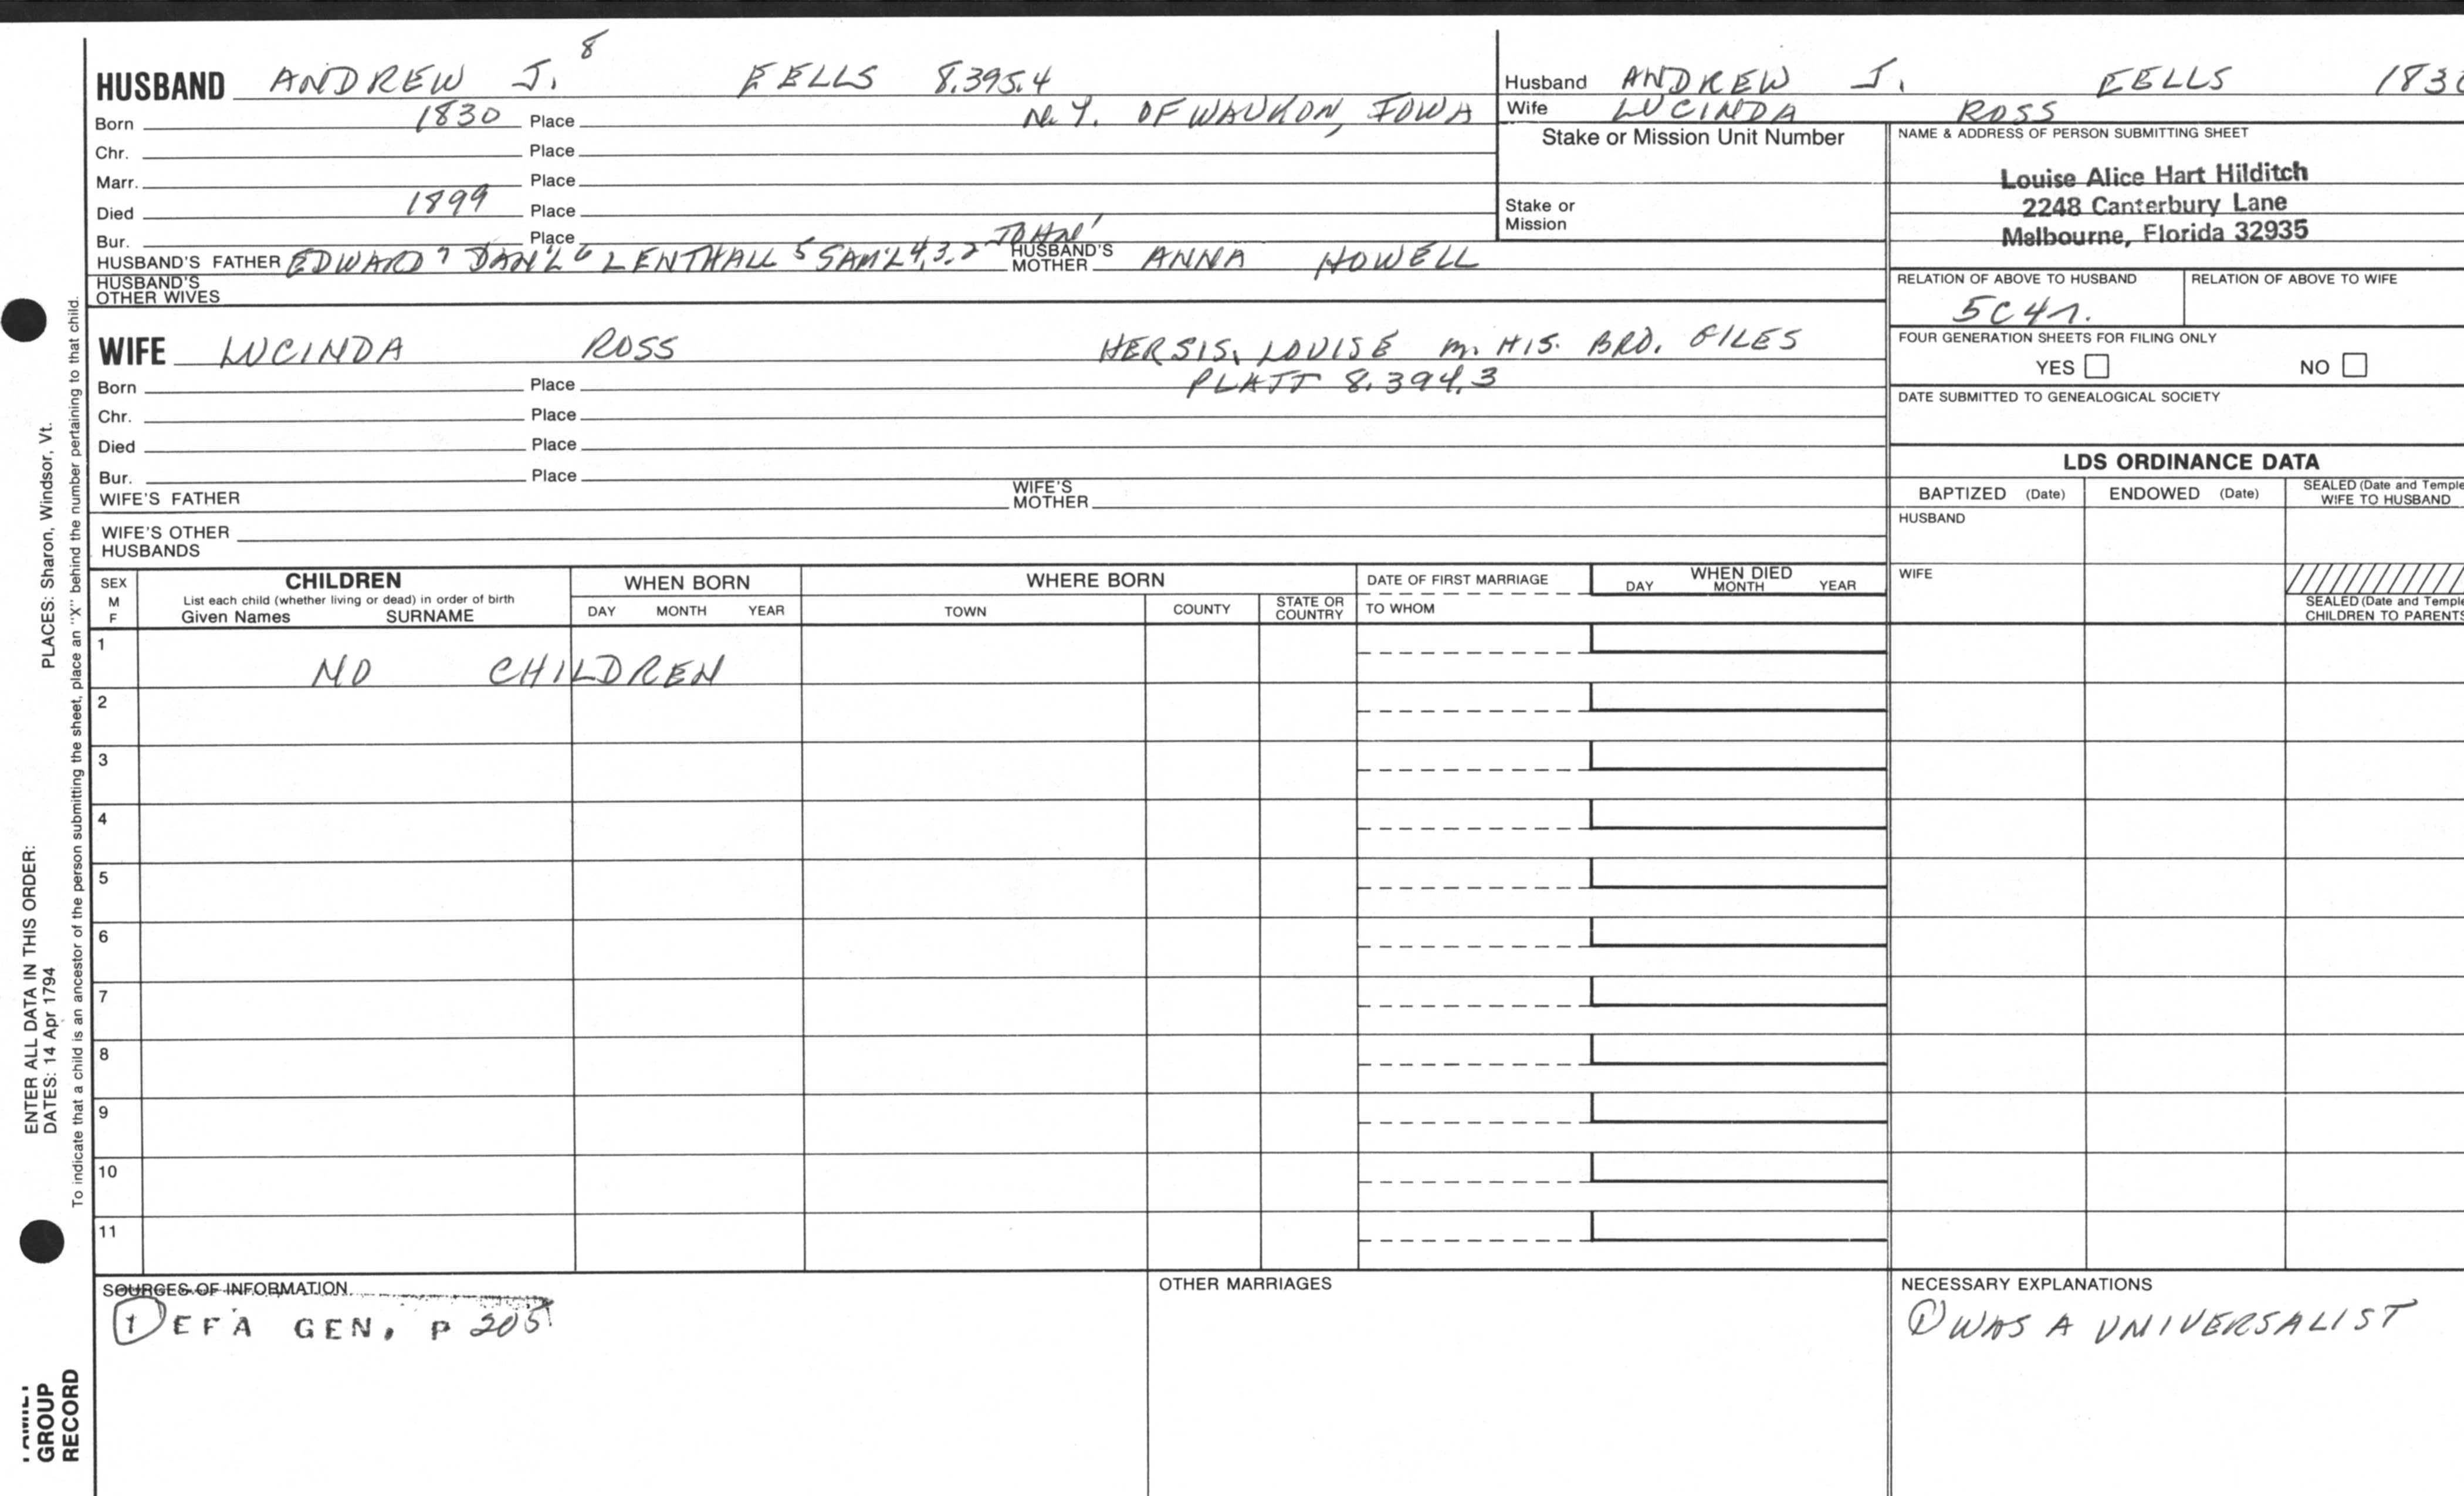 HUSBAND ANDREW J. 8 EELLS 8.395.4
Born 1830 Place N.Y. OF WAUKON, IOWA
Chr. Place
Marr. Place
Died 1899 Place
Bur. Place
HUSBAND'S FATHER EDWARD 7 DAN'L 6 LENTHALL 5 SAM'L 4,3,2 JOHN 1 HUSBAND'S MOTHER ANNA HOWELL
HUSBAND'S OTHER WIVES
WIFE LUCINDA ROSS HER SIS. LOUISE m. HIS. BRO. GILES
PLATT 8.394.3
Born Place
Chr. Place
Died Place
Bur. Place
WIFE'S FATHER WIFE'S MOTHER
WIFE'S OTHER HUSBANDS
Husband ANDREW J. EELLS 1830
Wife LUCINDA ROSS
Stake or Mission Unit Number
Stake or Mission
NAME & ADDRESS OF PERSON SUBMITTING SHEET
Louise Alice Hart Hilditch
2248 Canterbury Lane
Melbourne, Florida 32935
RELATION OF ABOVE TO HUSBAND RELATION OF ABOVE TO WIFE
5C4r.
FOUR GENERATION SHEETS FOR FILING ONLY
YES NO
DATE SUBMITTED TO GENEALOGICAL SOCIETY
LDS ORDINANCE DATA
BAPTIZED (Date) ENDOWED (Date) SEALED (Date and Temple) WIFE TO HUSBAND
HUSBAND
WIFE
SEALED (Date and Temple) CHILDREN TO PARENTS
SEX M F
CHILDREN
List each child (whether living or dead) in order of birth
Given Names SURNAME
WHEN BORN
DAY MONTH YEAR
WHERE BORN
TOWN COUNTY STATE OR COUNTRY
DATE OF FIRST MARRIAGE
TO WHOM
WHEN DIED
DAY MONTH YEAR
1 NO CHILDREN
2
3
4
5
6
7
8
9
10
11
SOURCES OF INFORMATION
1 EFA GEN. P 205
OTHER MARRIAGES
NECESSARY EXPLANATIONS
1 WAS A UNIVERSALIST
ENTER ALL DATA IN THIS ORDER:
DATES: 14 Apr 1794
PLACES: Sharon, Windsor, Vt.
To indicate that a child is an ancestor of the person submitting the sheet, place an "X" behind the number pertaining to that child.
FAMILY
GROUP
RECORD